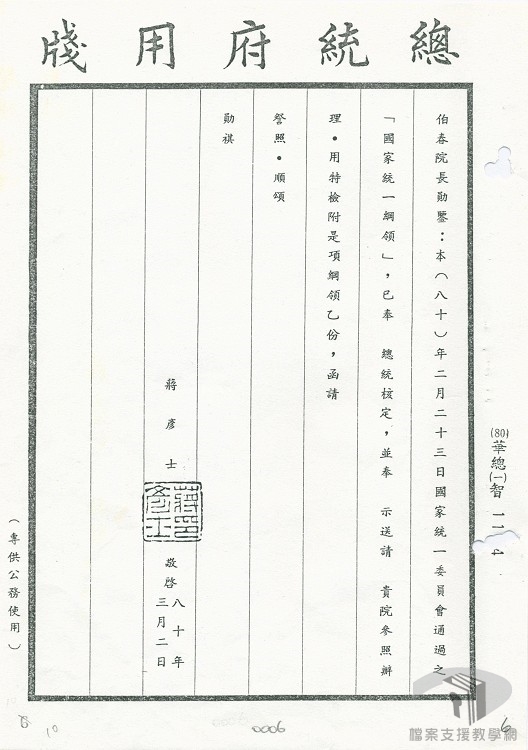 總統府用牋
(80)華總(一)智 11 4
伯春院長勛鑒：本(八十)年二月二十三日國家統一委員會通過之
「國家統一綱領」，已奉 總統核定，並奉 示送請 貴院參照辦
理。用特檢附是項綱領乙份，函請
詧照。順頌
勛祺
蔣彥士 敬啓 八十年三月二日
蔣彥士印
(專供公務使用)
10
0006
6
檔案支援教學網